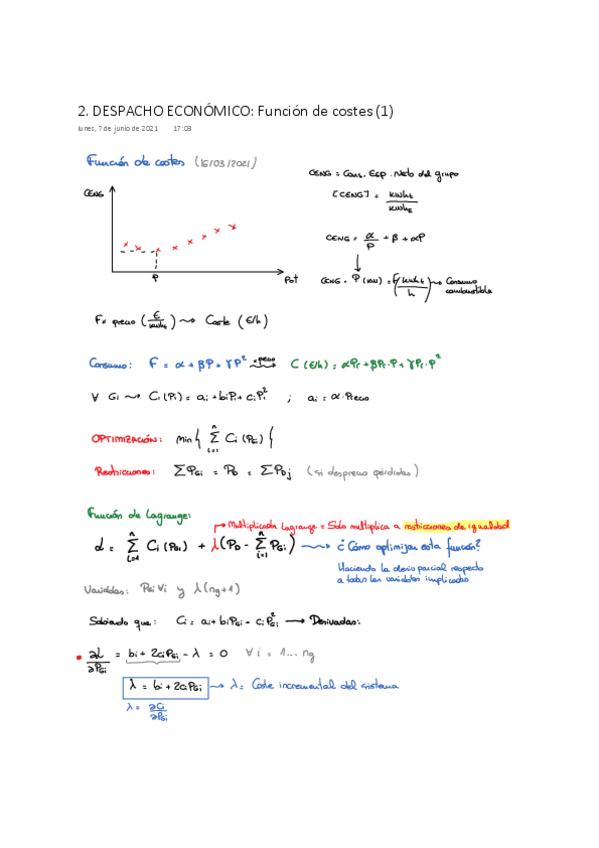 2. DESPACHO ECONÓMICO: Función de costes (1)
lunes, 7 de junio de 2021 17:08
Función de costes (16/03/2021)
CENG = Cons. Esp. Neto del grupo
CENG
[CENG] = kWht / kWhe
CENG = α/P + β + γP
P Pot
CENG · P (kW) = F (kWht/h) → Consumo combustible
F × precio (€/kWht) → Coste (€/h)
Consumo: F = α + βP + γP² · precio → C (€/h) = αPr + βPr·P + γPr·P²
∀ Gi → Ci(Pi) = ai + biPi + ciPi² ; ai = α·Precio
OPTIMIZACIÓN: Min { Σ Ci (PGi) }
Restricciones: ΣPGi = PD = ΣPDj (si desprecio pérdidas)
Función de Lagrange:
Multiplicador Lagrange = Solo multiplica a restricciones de igualdad
L = Σ Ci (PGi) + λ(PD - Σ PGi) → ¿Cómo optimizar esta función?
Haciendo la deriv parcial respecto
a todas las variables implicadas
Variables: PGi ∀i y λ (ng+1)
Sabiendo que: Ci = ai + biPGi - ciPGi² → Derivadas:
∂L/∂PGi = bi + 2ciPGi - λ = 0 ∀ i = 1... ng
λ = bi + 2ciPGi → λ = Coste incremental del sistema
λ = ∂Ci/∂PGi